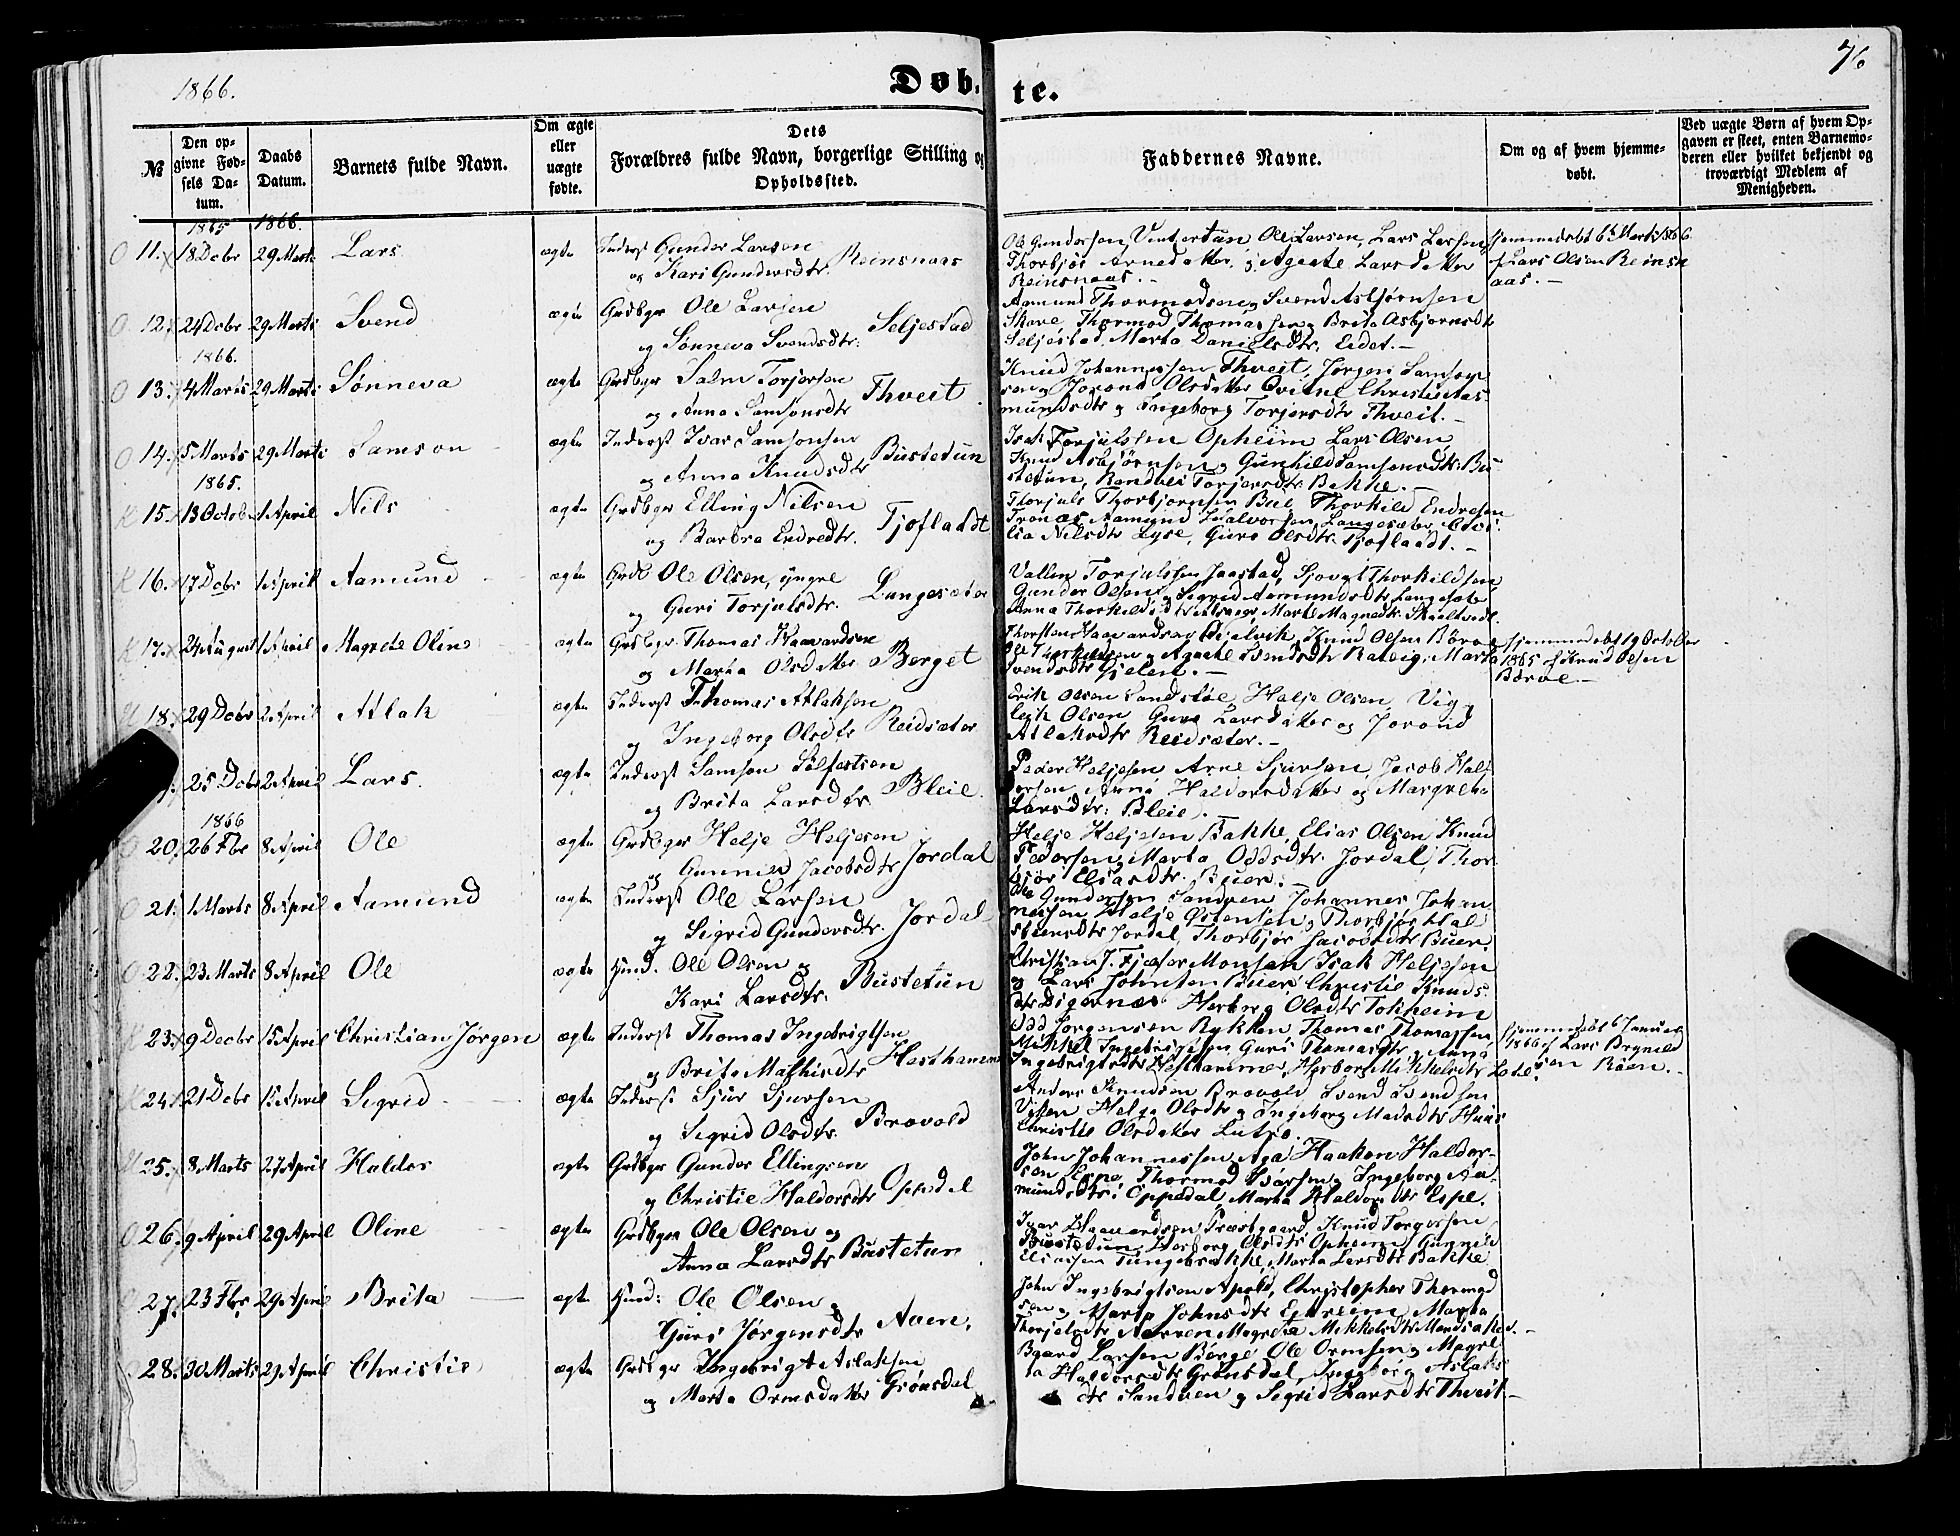 1866.
Døb-
te.
76
№
Den op-
givne Fød-
sels Da-
tum.
Daabs
Datum.
Barnets fulde Navn.
Om ægte
eller
uægte
fødte.
Dets
Forældres fulde Navn, borgerlige Stilling og
Opholdssted.
Faddernes Navne.
Om og af hvem hjemme-
døbt.
Ved uægte Børn af hvem Op-
gaven er skeet, enten Barnemo-
deren eller hvilket bekjendt og
troværdigt Medlem af
Menigheden.
1865 1866.
O 11. 18 Decbr 29 Marts Lars ægte Inderst Gunder Larsen
og Kari Gundersdtr. Reinsnaas
Ole Gundersen Vintertun Ole Larsen, Lars Larsen
Thorbjør Arnedatter, og Agaate Larsdatter
Reinsnaas.
hjemmedøbt 6 Marts 1866
af Lars Olsen Reinsn
aas.
O 12. 24 Decbr 29 Marts Svend ægte Grdbgr Ole Larsen
og Sønneva Svendsdtr. Seljestad
Aamund Thormodsen, Svend Asbjørnsen
Skare, Thormod Thomassen, Brita Asbjørnsdtr
Seljestad, Marta Danielsdtr. Eidet.
1866.
O 13. 4 Marts 29 Marts Sønneva ægte Grdbgr Salm Torjersen
og Anna Samsonsdtr Thveit
Knud Johannessen Thveit, Jørgen Samson
sen og Jorond Olsdatter Qvitne Christi Aas
mundsdtr og Ingeborg Torjersdtr Thveit.
O 14. 5 Marts 29 Marts Samson ægte Inderst Ivar Samsonsen
og Anna Knudsdtr Bustetun
Isak Torjulsen Opheim Lars Olsen
Knud Asbjørnsen, Gunhild Samsonsdtr. Bu-
stetun, Randvei Torjersdtr Bakke.
1865.
K 15. 13 Octobr 1 April Nils ægte Grdbgr Elling Nilsen
og Barbra Endredtr. Tjoflaadt
Thorjuls Thorbjørnsen Thorkild Endresen
Tronæs Aamund Langesæter
Nilsdtr Lyse, Guro Olsdtr. Tjoflaadt.
K 16. 17 Decbr 1 April Aamund ægte Grdb Ole Olsen, yngre
og Guri Torjulsdtr. Langesæter
Torjulsen Jaastad, Sjovat Thorkildsen
Gunder Olsen, Sigrid Aamundsdtr Langesæte
Anna Thorkildsdtr Alsager, Marte Magnedtr.
K 17. 24 August 1 April Magrete Oline ægte Grdbgr. Thomas Haavardsen
og Marta Olsdatter Berget
Thorsten Haavardsen Knud Olsen Børve
Thorkildsen, Agaate Svendsdtr Marta
Svendsdtr
hjemmedøbt 19 October
1865 af Knud Olsen
Børve.
18. 29 Decbr 2 April Atlak ægte Inderst Thomas Atlaksen
og Ingeborg Olsdtr Reidsæter
Erik Olsen Sandstøl, Helje Olsen Vig-
leik Olsen Guro Larsdatter og Jorond
Atlaksdtr Reidsæter.
25 Decbr 2 April Lars. ægte Inderst Samson Sølfestsen
og Brita Larsdtr Bleie.
Peder Heljesen Arne Sjursen, Jacob Hal-
dorsen Anna Haldorsdatter og Margrete
Larsdtr. Bleie.
1866
20. 26 Fbr 8 April Ole ægte Grdbgr Helje Heljesen
og Gunnild Jacobsdtr Jordal
Helje Heljesen Bakke, Elias Olsen Knud
Pedersen, Marta Oddsdtr. Jordal, Thor-
bjør Eliasdtr. Buer.
O 21. 1 Marts 8 April Aamund ægte Inderst Ole Larsen
og Sigrid Gundersdtr. Jordal
Ole Gundersen Sandven Johannes Johan-
nesen Helje Østensen, Thorbjør Hal
stensdtr Jordal, Thorbjør Jacobsdtr Buer.
O 22. 23 Marts 8 April Ole ægte Huusmd. Ole Olsen og
Kari Larsdtr. Bustetun
Christian J. Fjæser Monsen Isak Heljesen
og Lars Johnsen Buer Christie Knuds-
dtr Digernæs Herborg Olsdtr Tokheim
23. 9 Decbr 15 April Christian Jørgen ægte Inderst Thomas Ingebrigtsen
og Brita Mathisdtr Hesthammer
Odd Jørgensen Rykken Thomas Thomassen
Mikkel Ingebrigtsen Guri Thomasdtr, Anna
Ingebrigtsdtr Hesthammer, Herborg Mikkelsdtr
hjemmedøbt 6 Januar
1866 af Lars Brynild
sen Røen.
24. 21 Decbr 15 April Sigrid ægte Inderst Sjur Sjursen
og Sigrid Olsdtr. Bravold
Anders Knudsen Bravold, Svend Svendsen
Helga Olsdtr og Ingeborg Madsdtr Huus
Christie Olsdatter Lutro.
25. 8 Marts 27 April Haldor ægte Grdbgr Gunder Ellingsen
og Christie Haldorsdtr Oppedal
John Johannessen Aga Haaken Haldor-
sen Espe, Thormod Ivarsen, Ingeborg Aa-
mundsdtr. Oppedal Marta Haldorsdtr Espe.
O 26. 9 April 29 April Oline ægte Grdbgr Ole Olsen og
Anna Larsdtr Bustetun
Ivar Haavardsen Præstgaard Knud Torgersen
Bustetun, Herborg Olsdtr Opheim, Gunnild
Eliassen Tungesvikke, Marta Larsdtr Bakke
27. 23 Fbr 29 April Brita ægte Husmd: Ole Olsen og
Guri Jørgensdtr Aaen.
John Ingebrigtsen Apold, Christopher Thormod
sen, Marta Johnsdtr Eitreim Marta
Thorjelsdtr Magreta Mikkelsdtr
28. 30 Marts 29 April Christie ægte Grdbgr Ingebrigt Aslaksen
og Marta Ormsdatter Grønsdal
Baard Larsen Børge Ole Ormsen, Magre
ta Haldorsdtr Grønsdal, Ingeborg Aslaks
dtr Sandven og Sigrid Larsdtr Thveit